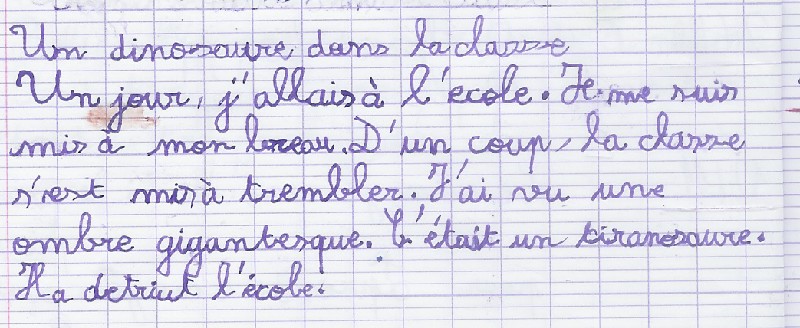 Un dinosaure dans la classe
Un jour, j'allais à l'ecole. Je me suis
mis à mon bureau. D'un coup, la classe
s'est mis à trembler. J'ai vu une
ombre gigantesque. C'était un tiranosaure.
Il a detriut l'école.